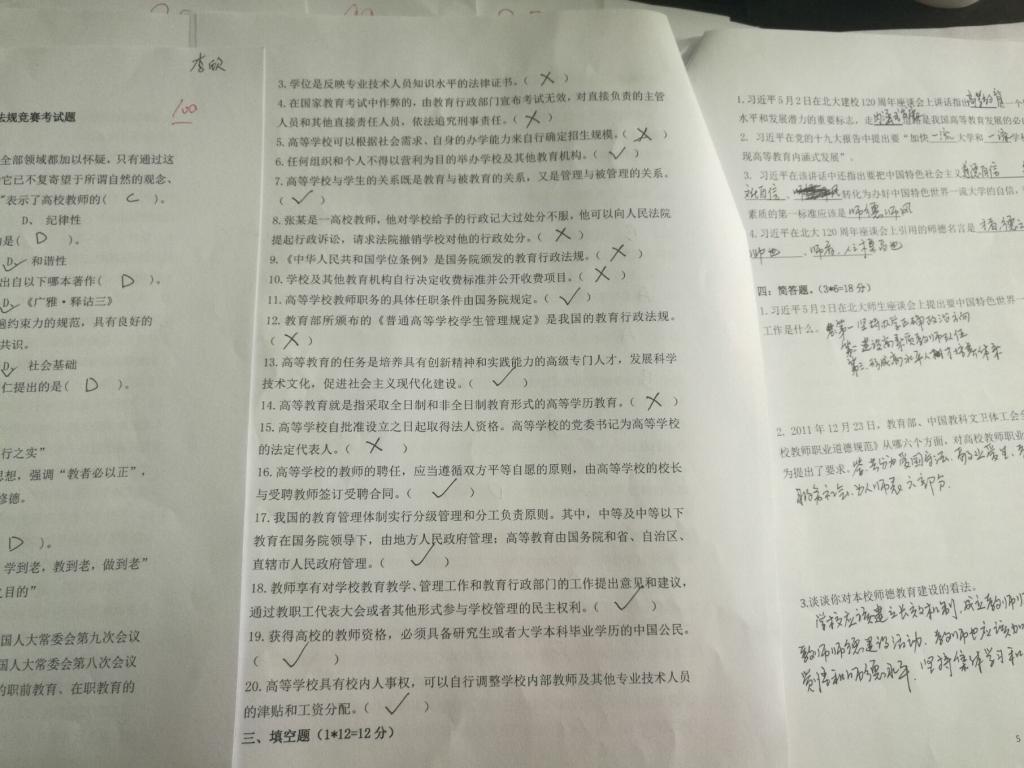 李欣
100
法规竞赛考试题
全部领域都加以怀疑，只有通过这
它已不复寄望于所谓自然的观念、
”表示了高校教师的（ C ）。
D、 纪律性
是（ D ）。
D、和谐性
出自以下哪本著作（ D ）。
D、《广雅·释诂三》
约束力的规范，具有良好的
共识。
D、社会基础
仁提出的是（ D ）。
行之实”
思想，强调“教者必以正”，
修德。
D ）。
学到老，教到老，做到老”
之目的”
国人大常委会第九次会议
国人大常委会第八次会议
的职前教育、在职教育的
3.学位是反映专业技术人员知识水平的法律证书。（ × ）
4.在国家教育考试中作弊的，由教育行政部门宣布考试无效，对直接负责的主管
人员和其他直接责任人员，依法追究刑事责任。（ × ）
5.高等学校可以根据社会需求、自身的办学能力来自行确定招生规模。（ × ）
6.任何组织和个人不得以营利为目的举办学校及其他教育机构。（ ✓ ）
7.高等学校与学生的关系既是教育与被教育的关系，又是管理与被管理的关系。
（ ✓ ）
8.张某是一高校教师，他对学校给予的行政记大过处分不服，他可以向人民法院
提起行政诉讼，请求法院撤销学校对他的行政处分。（ × ）
9.《中华人民共和国学位条例》是国务院颁发的教育行政法规。（ × ）
10.学校及其他教育机构自行决定收费标准并公开收费项目。（ × ）
11.高等学校教师职务的具体任职条件由国务院规定。（ ✓ ）
12.教育部所颁布的《普通高等学校学生管理规定》是我国的教育行政法规。
（ × ）
13.高等教育的任务是培养具有创新精神和实践能力的高级专门人才，发展科学
技术文化，促进社会主义现代化建设。（ ✓ ）
14.高等教育就是指采取全日制和非全日制教育形式的高等学历教育。（ × ）
15.高等学校自批准设立之日起取得法人资格。高等学校的党委书记为高等学校
的法定代表人。（ × ）
16.高等学校的教师的聘任，应当遵循双方平等自愿的原则，由高等学校的校长
与受聘教师签订受聘合同。（ ✓ ）
17.我国的教育管理体制实行分级管理和分工负责原则。其中，中等及中等以下
教育在国务院领导下，由地方人民政府管理；高等教育由国务院和省、自治区、
直辖市人民政府管理。（ ✓ ）
18.教师享有对学校教育教学、管理工作和教育行政部门的工作提出意见和建议，
通过教职工代表大会或者其他形式参与学校管理的民主权利。（ ✓ ）
19.获得高校的教师资格，必须具备研究生或者大学本科毕业学历的中国公民。
（ ✓ ）
20.高等学校具有校内人事权，可以自行调整学校内部教师及其他专业技术人员
的津贴和工资分配。（ ✓ ）
三、填空题（1*12=12分）
1.习近平5月2日在北大建校120周年座谈会上讲话指出高等教育是一个
水平和发展潜力的重要标志，走内涵式发展是我国高等教育发展的必
2. 习近平在党的十九大报告中提出要“加快一流大学和一流学
现高等教育内涵式发展”。
3. 习近平在该讲话中还指出要把中国特色社会主义道路自信、
化自信 转化为办好中国特色世界一流大学的自信，
素质的第一标准应该是师德师风
4.习近平在北大120周年座谈会上引用的师德名言是
师也 、师者，人之模范也
四：简答题。（3*6=18分）
1.习近平5月2日在北大师生座谈会上提出要中国特色世界一
工作是什么。 第一坚持办学正确政治方向
第二建设高素质教师队伍
第三形成高水平人才培养体系
2. 2011年12月23日，教育部、中国教科文卫体工会全
校教师职业道德规范》从哪六个方面，对高校教师职业
为提出了要求。答：共分为爱国守法、敬业爱生、
服务社会、为人师表六部分.
3.谈谈你对本校师德教育建设的看法。
学校应该建立长效机制，成立教师
教师师德建设活动. 教师也应该加
和师德水平，坚持集体学习和
5